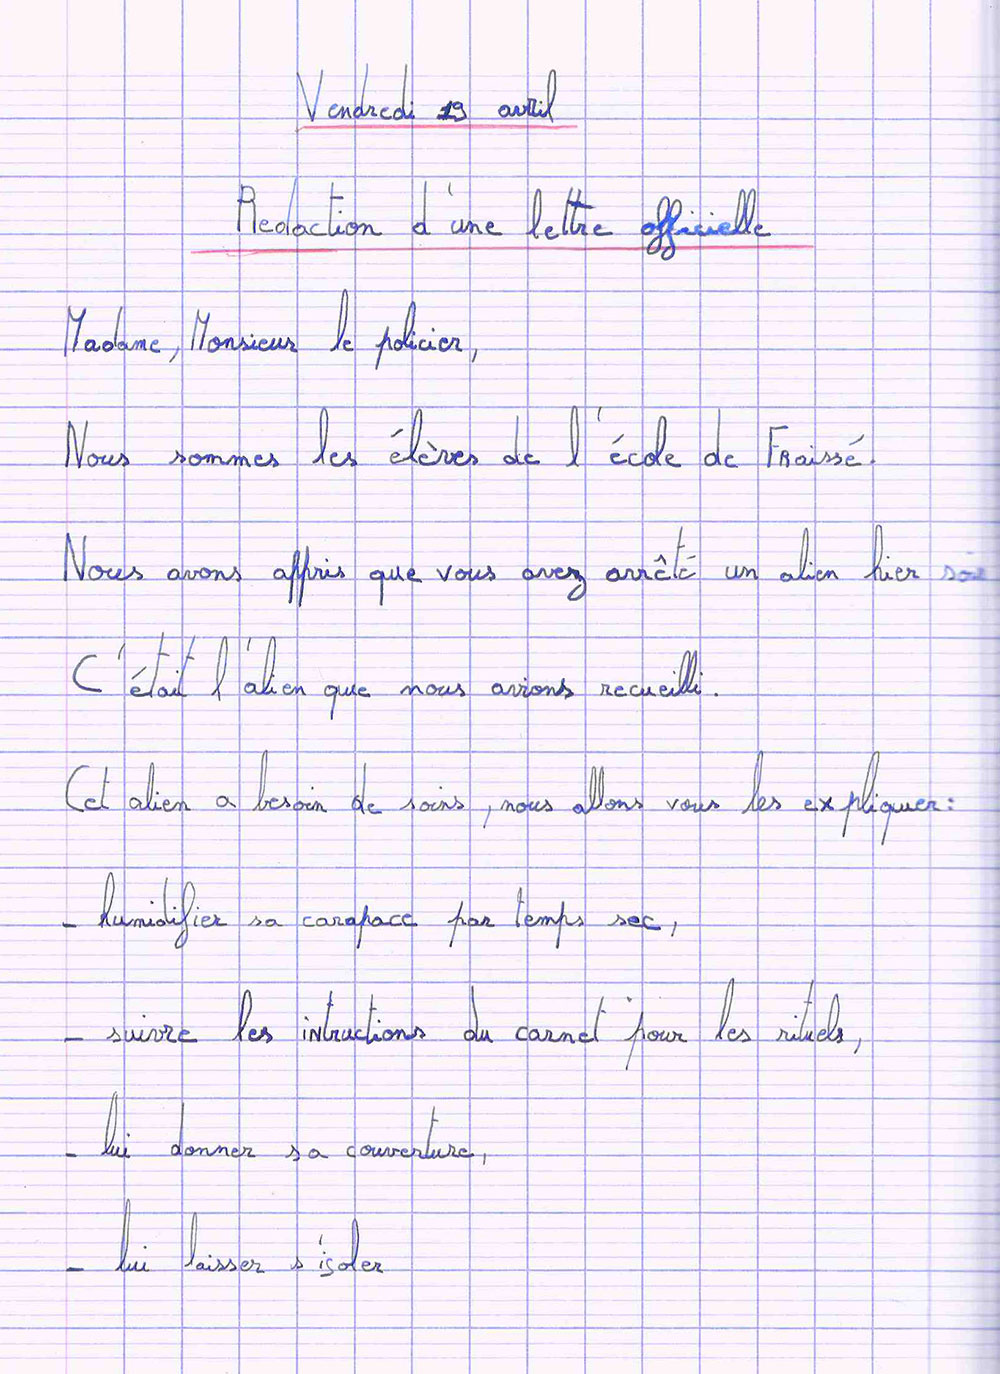 Vendredi 19 avril
Redaction d'une lettre officielle
Madame, Monsieur le policier,
Nous sommes les élèves de l'école de Fraissé.
Nous avons appris que vous avez arrêté un alien hier soi
C'était l'alien que nous avions recueilli.
Cet alien a besoin de soins, nous allons vous les expliquer:
- humidifier sa carapace par temps sec,
- suivre les intructions du carnet pour les rituels,
- lui donner sa couverture,
- lui laisser s'isoler